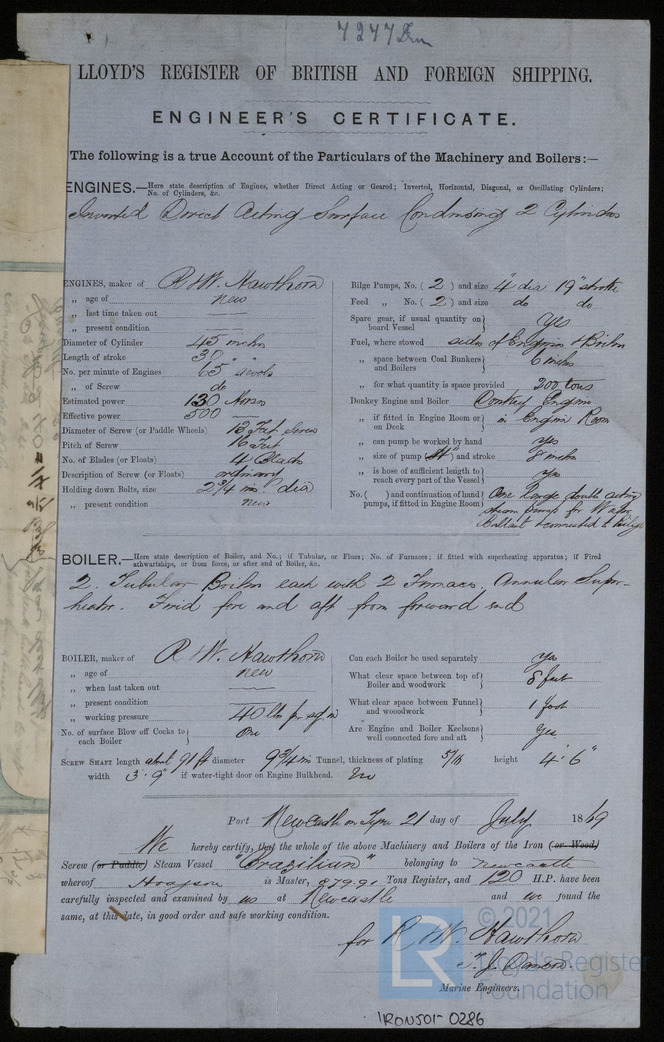 7277 Irn
LLOYD'S REGISTER OF BRITISH AND FOREIGN SHIPPING.
ENGINEER'S CERTIFICATE.
The following is a true Account of the Particulars of the Machinery and Boilers:—
ENGINES.—Here state description of Engines, whether Direct Acting or Geared; Inverted, Horizontal, Diagonal, or Oscillating Cylinders;
No. of Cylinders, &c.
Inverted Direct Acting Surface Condensing 2 Cylinders
ENGINES, maker of R & W. Hawthorn
„ age of new
„ last time taken out
„ present condition
Diameter of Cylinder 45 inches
Length of stroke 30 " "
No. per minute of Engines 65
„ of Screw do
Estimated power 130 Horses
Effective power 500
Diameter of Screw (or Paddle Wheels) 13 Feet Screw
Pitch of Screw 16 Feet
No. of Blades (or Floats) 4 Blades
Description of Screw (or Floats) ordinary
Holding down Bolts, size 2 3/4 ins dia
„ present condition new
Bilge Pumps, No. ( 2 ) and size 4" dia 19" stroke
Feed „ No. ( 2 ) and size do do
Spare gear, if usual quantity on
board Vessel } Yes
Fuel, where stowed sides of Engines & Boilers
„ space between Coal Bunkers
and Boilers } 6 inches
„ for what quantity is space provided 200 tons
Donkey Engine and Boiler Donkey Engine
„ if fitted in Engine Room or
on Deck } in Engine Room
„ can pump be worked by hand yes
„ size of pump ( 4" ) and stroke 8 inches
„ is hose of sufficient length to
reach every part of the Vessel } yes
No. ( ) and continuation of hand
pumps, if fitted in Engine Room } One large double acting
steam pump for Water
Ballast & connected to Bilge
BOILER.—Here state description of Boiler, and No.; if Tubular, or Flues; No. of Furnaces; if fitted with superheating apparatus; if Fired
athwartships, or from force, or after end of Boiler, &c.
2. Tubular Boilers each with 2 Furnaces. Annular Super-
heater. Fired fore and aft from forward end
BOILER, maker of R & W. Hawthorn
„ age of new
„ when last taken out
„ present condition
„ working pressure 40 lbs per sq in
No. of surface Blow off Cocks to
each Boiler } One
Can each Boiler be used separately Yes
What clear space between top of
Boiler and woodwork } 8 feet
What clear space between Funnel
and wooodwork } 1 foot
Are Engine and Boiler Keelsons
well connected fore and aft } Yes
SCREW SHAFT length about 91 ft diameter 9 3/4 ins Tunnel, thickness of plating 5/16 height 4' 6"
width 3' 9" if water-tight door on Engine Bulkhead. No
Port Newcastle on Tyne 21 day of July 1869
We hereby certify, that the whole of the above Machinery and Boilers of the Iron (or Wood)
Screw (or Paddle) Steam Vessel "Brazilian" belonging to Newcastle
whereof Hodgson is Master, 879.91 Tons Register, and 120 H.P. have been
carefully inspected and examined by us at Newcastle and we found the
same, at this date, in good order and safe working condition.
for R & W. Hawthorn
Marine Engineers.
© 2021
Lloyd's Register
Foundation
LR
IRONJOI-0286